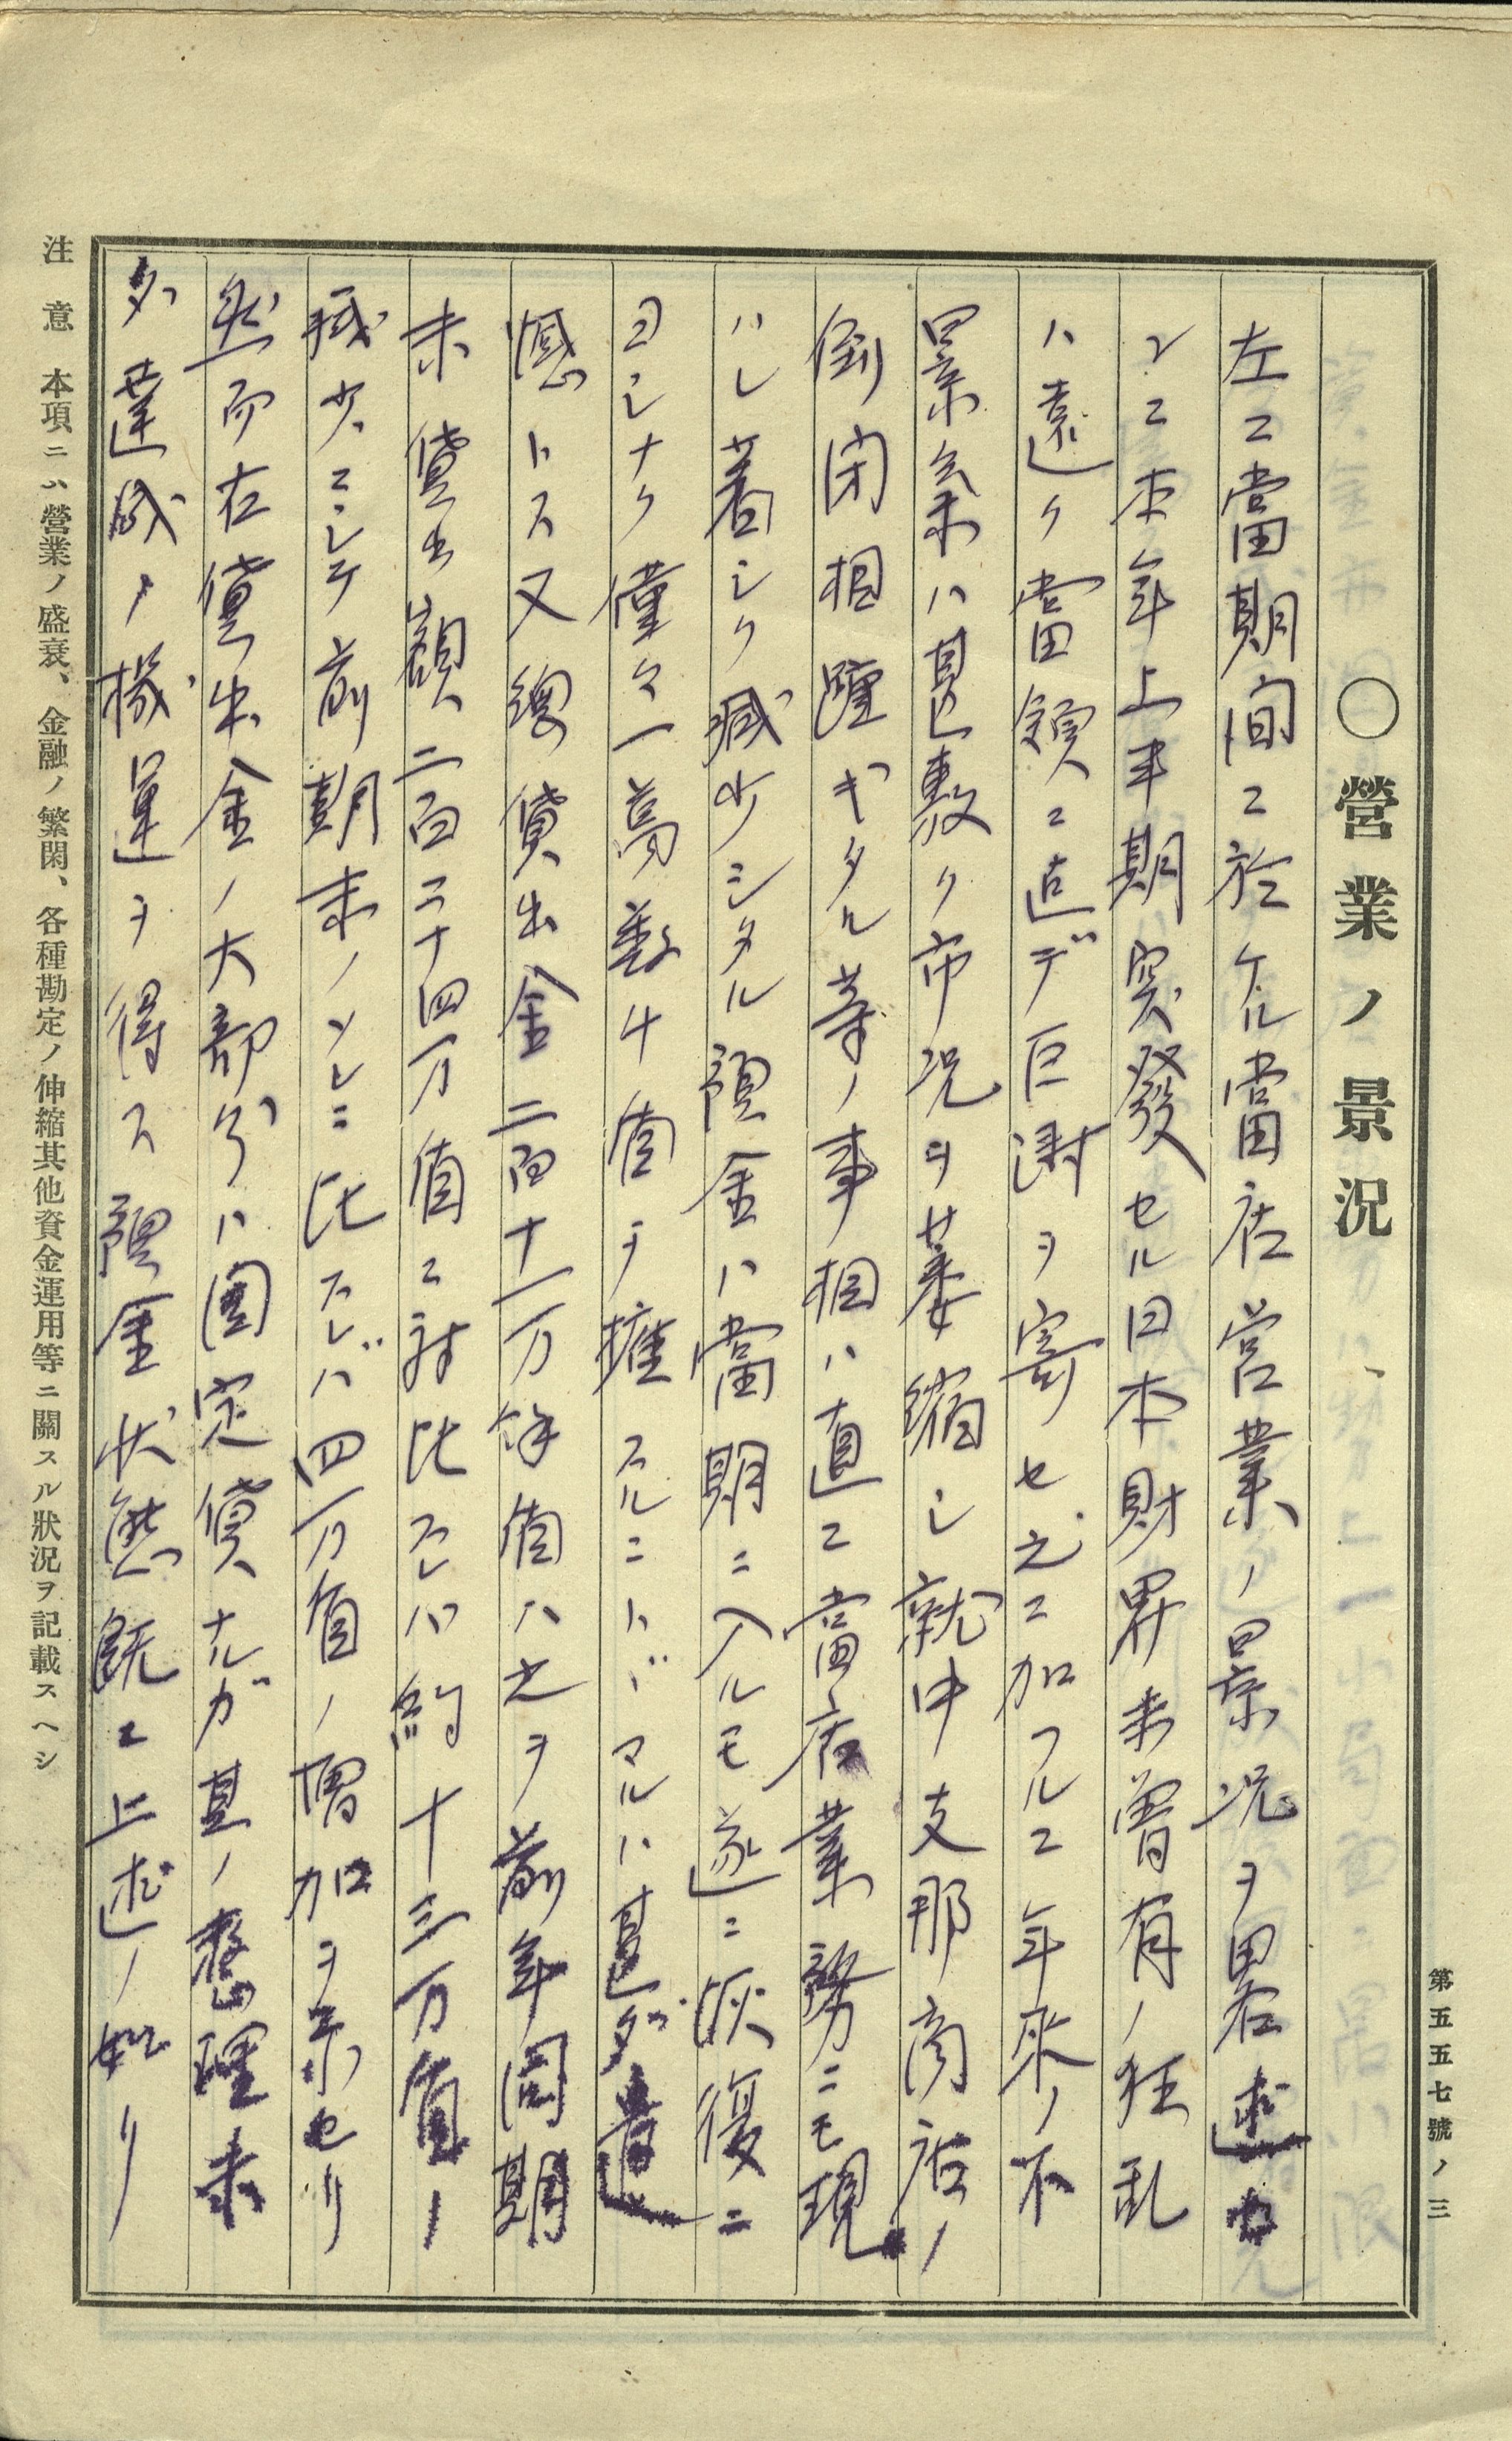 ○營業ノ景況
左ニ當期間ニ於ケル當店営業ノ景況ヲ畧述
ニ本年上半期、突發セル日本財界未曾有ノ狂乱
ハ遠ク當領ニ迄デ巨謝ヲ寄セ之ニ加フルニ年来ノ不
景氣ハ甚敷ク市况ヲ萎縮シ就中支那商店ノ
倒閉相踵ギタル等ノ事相ハ直ニ當店業務ニモ現
ハレ著シク減少シタル預金ハ當期ニ入ルモ遂ニ恢復ニ
ヨシナク僅々一萬数十ヲ擁スルニトドマルハ甚ダ遺
憾トス又總貸出金二百十一万余ハ之ヲ前年同期
末貸出額二百二十四万ニ対比スレハ約十三万ノ
減少ニシテ前期末ノソレニ比スレバ四万ノ増加ヲ示セリ
然而右貸出金ノ大部分ハ固定貸ナルガ其ノ整理未
ダ達成ノ機運ヲ得ス預金状態既ニ上述ノ如ク
注意 本項ニハ營業ノ盛衰、金融ノ繁閑、各種勘定ノ伸縮其他資金運用等ニ關スル狀況ヲ記載スヘシ
第五五七號ノ三